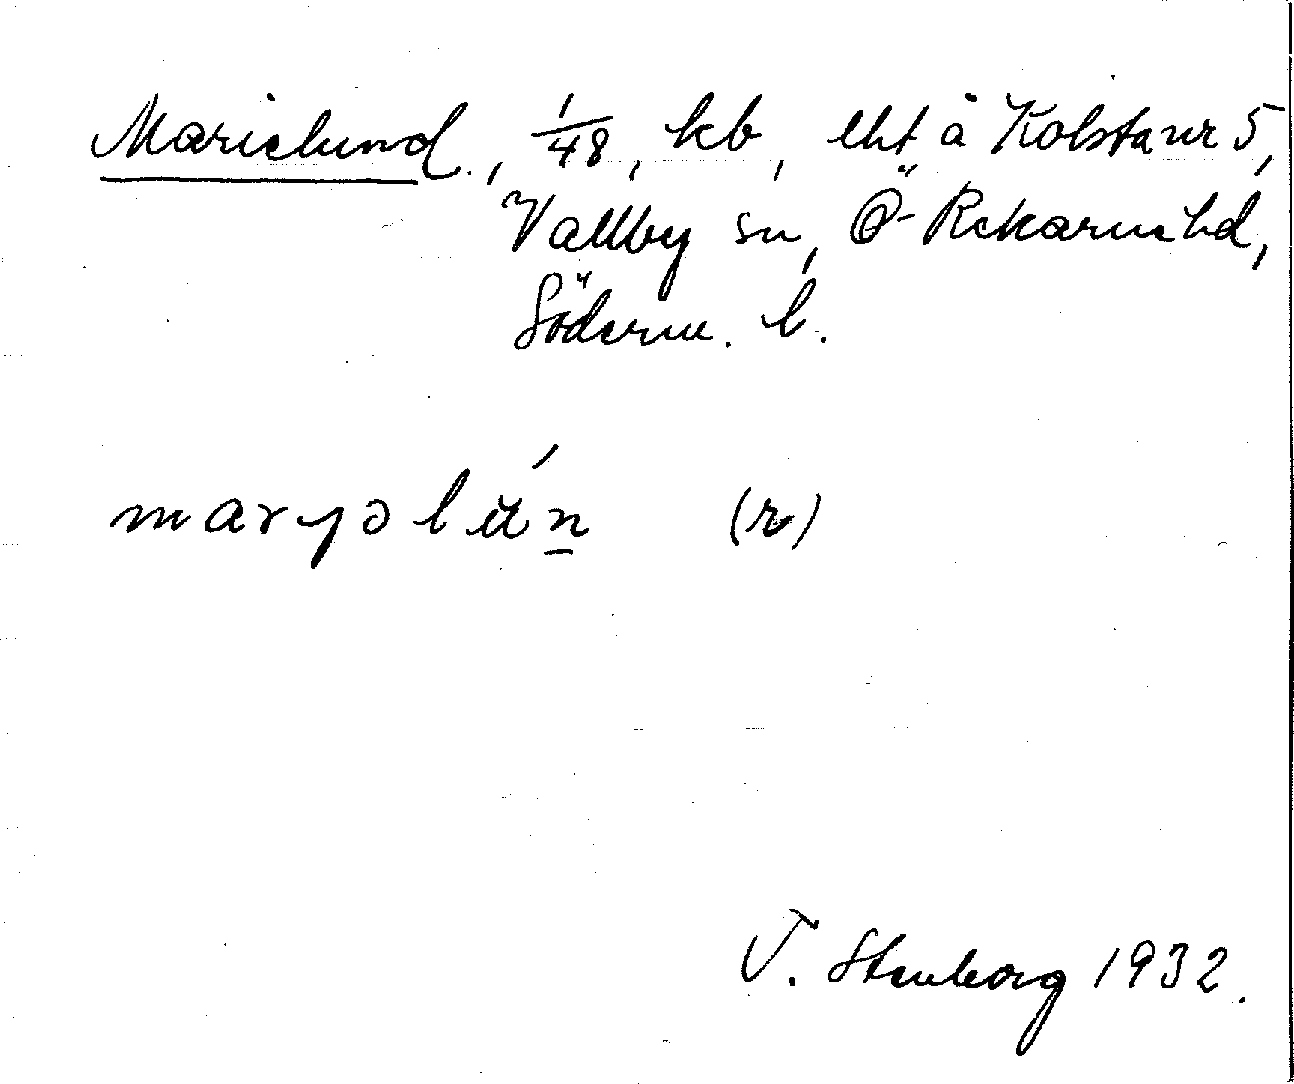 Marielund, 1/48, kb, lht å Kolsta nr 5,
Vallby sn, Ö-Rekarne hd,
Söderm. l.
maryəlún (r)
T. Stenborg 1932.